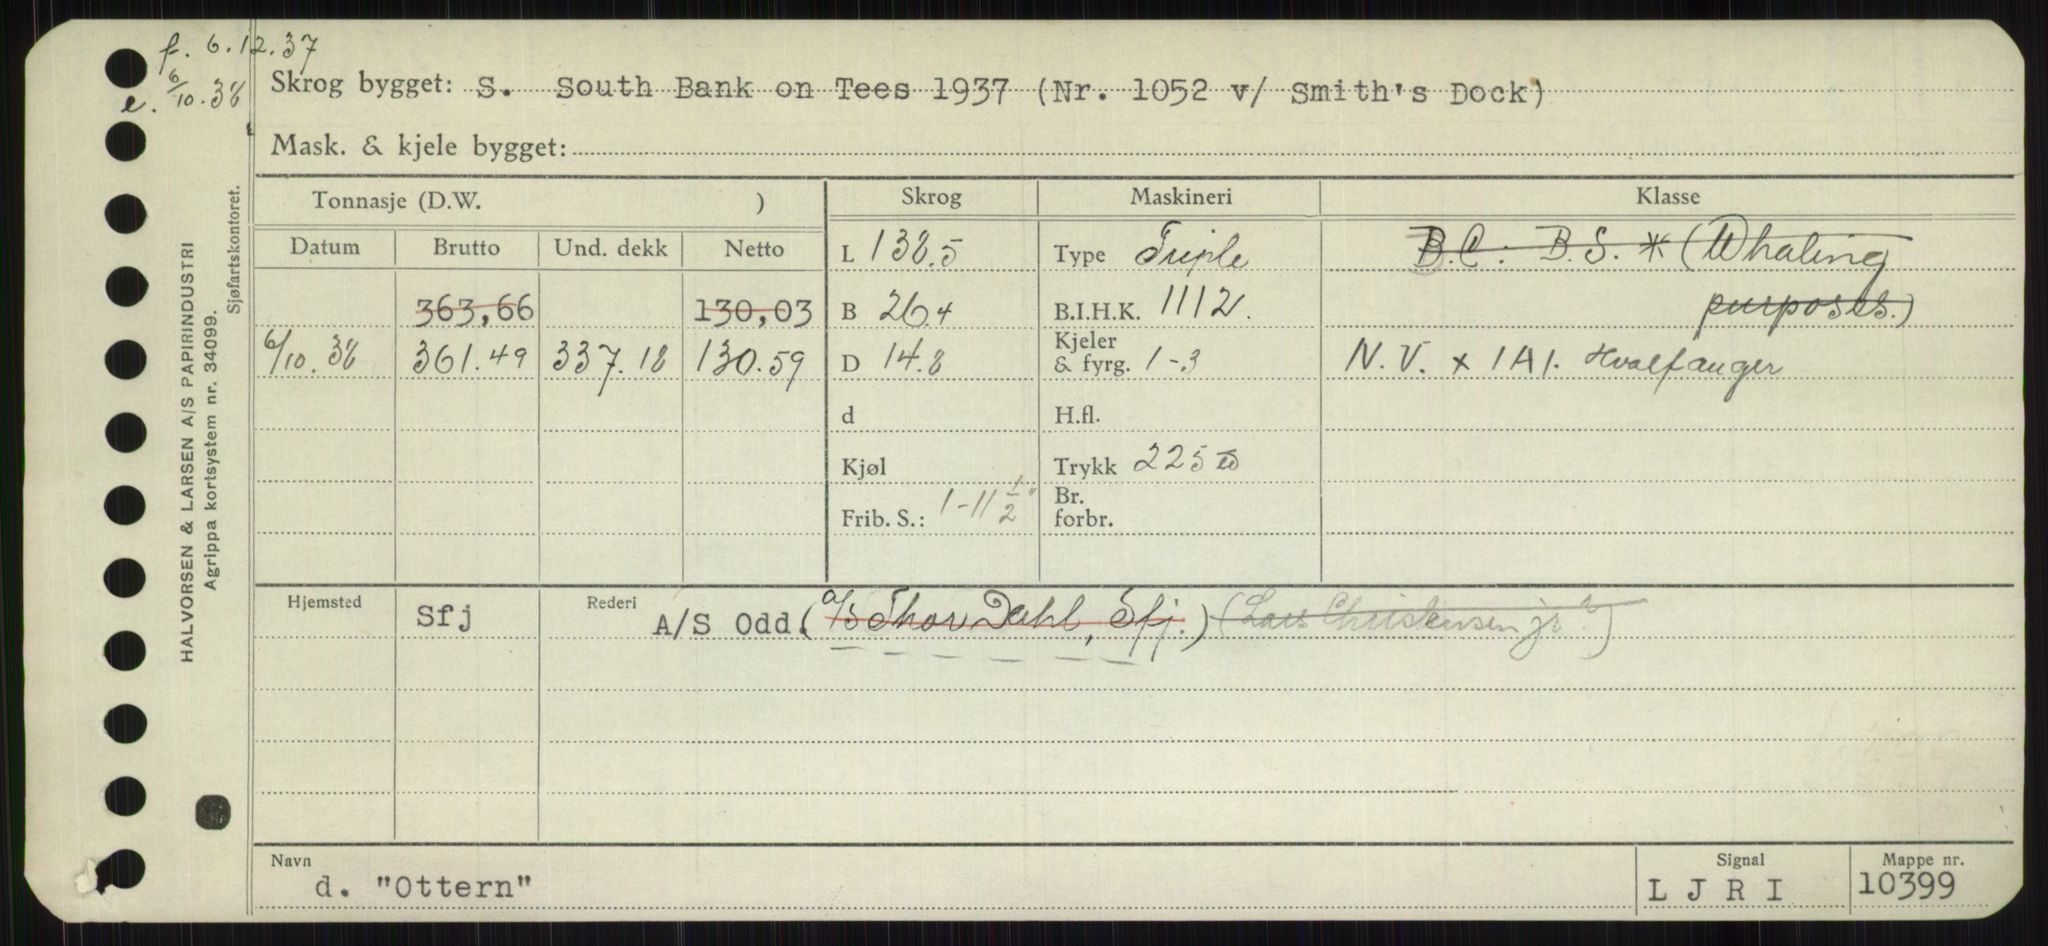 f. 6.12.37
e. 6/10.38
Skrog bygget: S. South Bank on Tees 1937 (Nr. 1052 v/ Smith's Dock)
Mask. & kjele bygget:
HALVORSEN & LARSEN A/S PAPIRINDUSTRI
Agrippa kortsystem nr. 34099.
Sjøfartskontoret.
Tonnasje (D.W. ) Skrog Maskineri Klasse
Datum Brutto Und. dekk Netto L 138.5 Type Triple B.C. B.S. * (Whaling
363,66 130,03 B 26.4 B.I.H.K. 1112. purposes.)
6/10.38 361.49 337.18 130.59 D 14.8 Kjeler & fyrg. 1-3 N.V. x 1A1. Hvalfanger
d H.fl.
Kjøl Trykk 225 lb
Frib. S.: 1-11 1/2" Br. forbr.
Hjemsted Sfj Rederi A/S Odd. (A/S Thor Dahl, Sfj.) (Lars Christensen jr.)
Navn Signal Mappe nr.
d. "Ottern" L J R I 10399